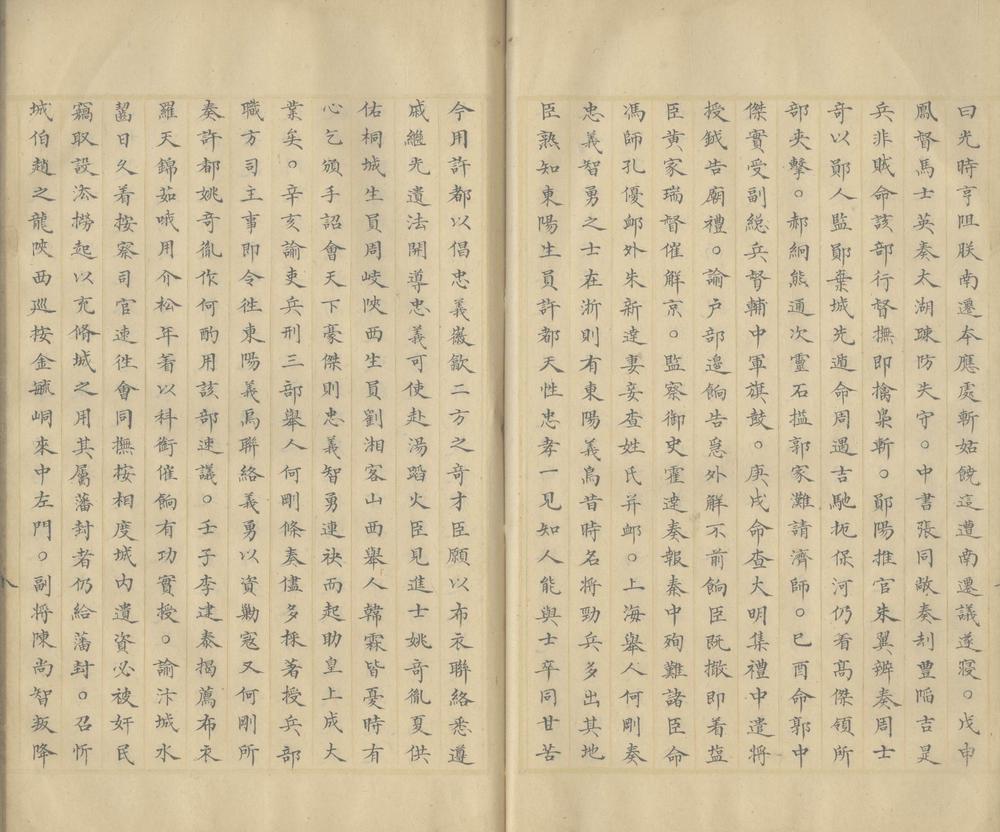 曰光時亨阻朕南遷本應處斬姑饒這遭南遷議遂寢○戊申
鳳督馬士英奏太湖疎防失守○中書張同敞奏刦豐陷吉是
兵非賊命該部行督撫即擒梟斬○鄖陽推官朱翼辨奏周士
奇以鄖人監鄖棄城先遁命周遇吉馳扼保河仍看高傑領所
部夾擊○郝絅熊通次靈石搤郭家灘請濟師○己酉命郭中
傑實受副総兵督輔中軍旗鼓○庚戌命查大明集禮中遣將
授鉞告廟禮○諭户部邉餉告急外解不前餉臣既撤即着塩
臣黄家瑞督催解京○監察御史霍達奏報秦中殉難諸臣命
馮師孔優䘏外朱新達妻妾查姓氏并䘏○上海舉人何剛奏
忠義智勇之士在浙則有東陽義烏昔時名將勁兵多出其地
臣熟知東陽生員許都天性忠孝一見知人能與士卒同甘苦
今用許都以倡忠義徽歙二方之奇才臣願以布衣聯絡悉遵
戚繼光遺法開導忠義可使赴湯蹈火臣見進士姚奇胤夏供
佑桐城生員周岐陜西生員劉湘客山西舉人韓霖皆憂時有
心乞頒手詔會天下豪傑則忠義智勇連袂而起助皇上成大
業矣○辛亥諭吏兵刑三部舉人何剛條奏儘多採著授兵部
職方司主事即令徃東陽義烏聯絡義勇以資勦寇又何剛所
奏許都姚奇胤作何酌用該部速議○壬子李建泰揭薦布衣
羅天錦茹哦用介松年着以科銜催餉有功實授○諭汴城水
齧日久着按察司官速徃會同撫按相度城内遺資必被奸民
竊取設法撈起以充脩城之用其屬藩封者仍給藩封○召忻
城伯趙之龍陜西巡按金毓峒來中左門○副將陳尚智叛降